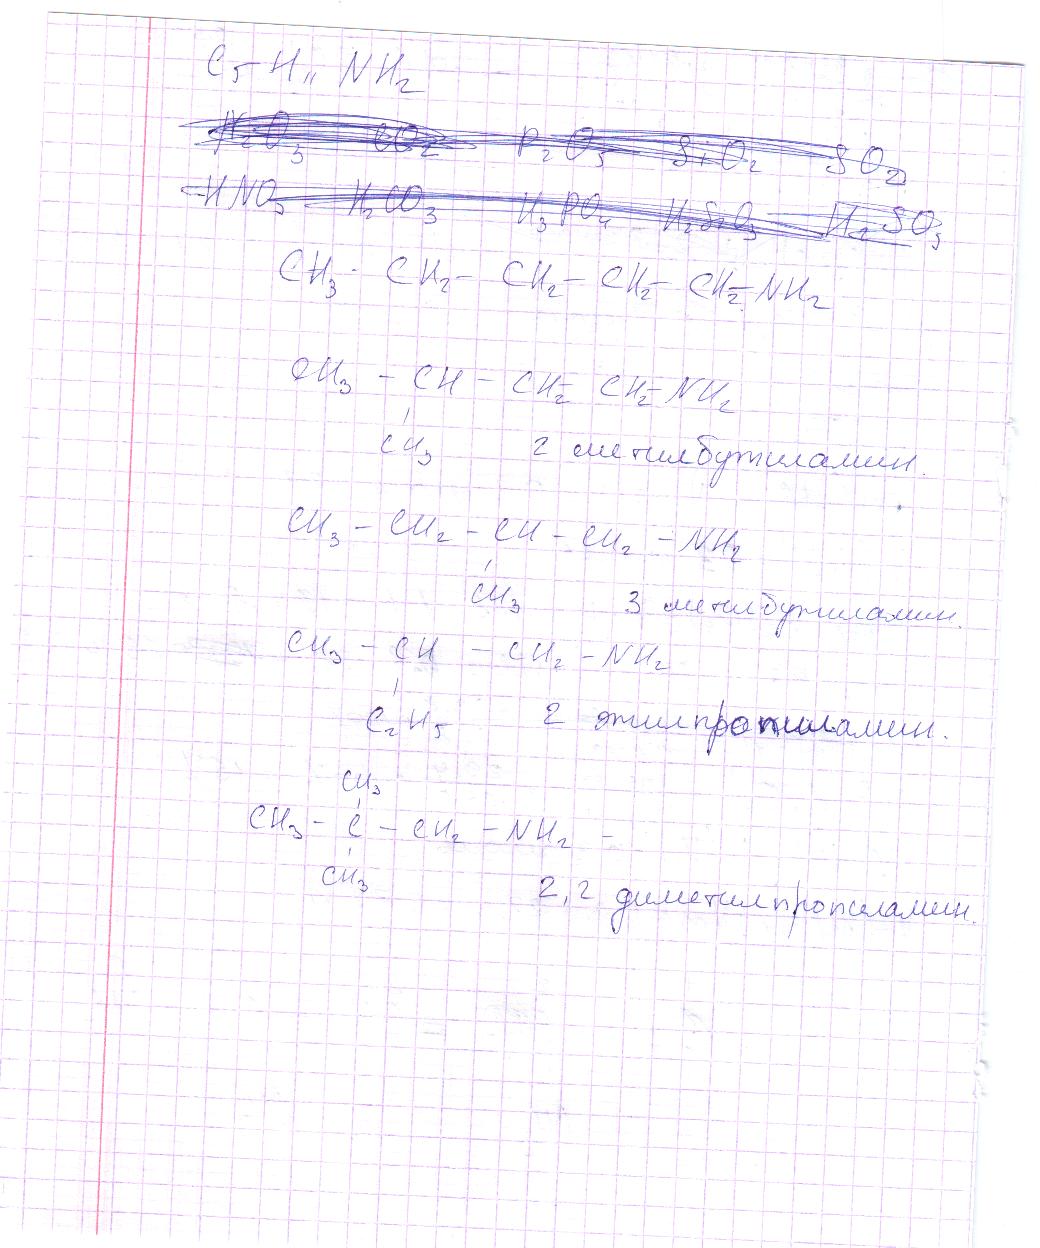 C₅H₁₁NH₂
N₂O₃ CO₂ P₂O₅ SiO₂ SO₂
HNO₃ H₂CO₃ H₃PO₄ H₂SiO₃ H₂SO₃
CH₃ - CH₂ - CH₂ - CH₂ - CH₂ - NH₂
CH₃ - CH - CH₂ - CH₂ - NH₂
CH₃ 2 метилбутиламин.
CH₃ - CH₂ - CH - CH₂ - NH₂
CH₃ 3 метилбутиламин.
CH₃ - CH - CH₂ - NH₂
C₂H₅ 2 этилпропиламин.
CH₃
CH₃ - C - CH₂ - NH₂ -
CH₃ 2,2 диметилпропиламин.